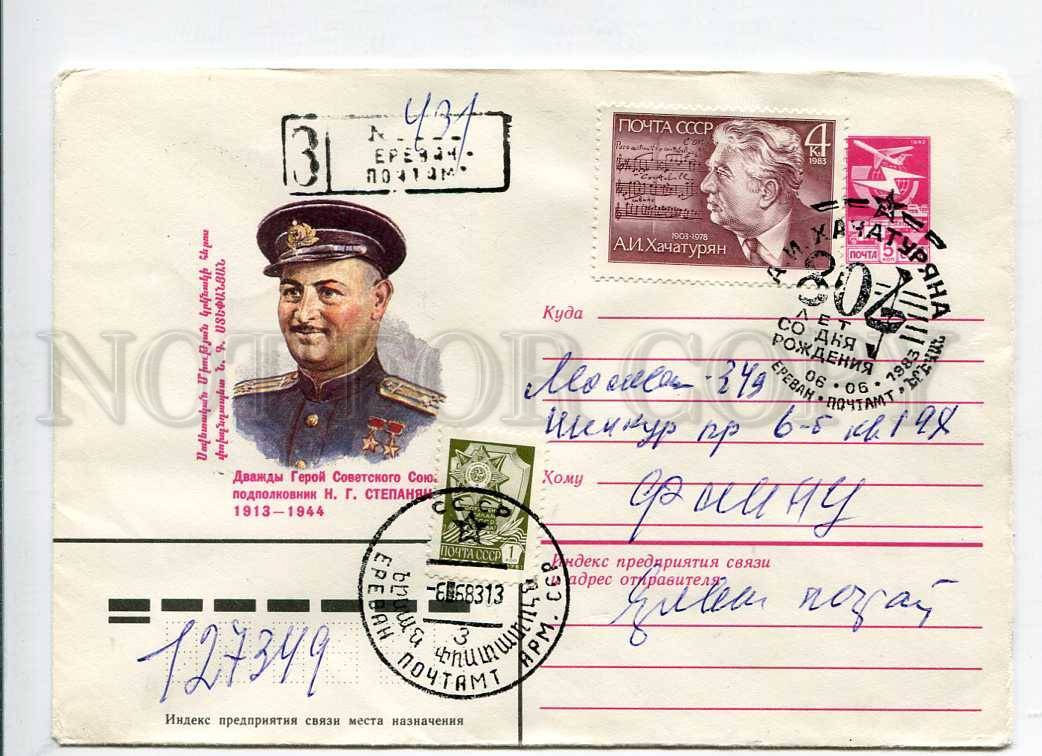 431
З
№
ЕРЕВАН
ПОЧТАМТ
ПОЧТА СССР
4 к
1983
1903-1978
А.И.Хачатурян
1982
ПОЧТА 5 коп
А.И. ХАЧАТУРЯНА
80
ЛЕТ
СО ДНЯ
РОЖДЕНИЯ
06·06·1983
ЕРЕВАН · ПОЧТАМТ · ԵՐԵՎԱՆ
Սովետական Միության կրկնակի հերոս
փոխգնդապետ Ն. Գ. ՍՏԵՓԱՆՅԱՆ
NOTFOR.COM
Дважды Герой Советского Союз
подполковник Н. Г. СТЕПАНЯН
1913—1944
Куда
Москва-349
6-б кв 198
Кому
Фаину
ПОЧТА СССР 1 КОП
СССР
-6 6 83 13
3
ЕРЕВАН ПОЧТАМТ АРМ. ССР
Индекс предприятия связи
и адрес отправителя
127349
Индекс предприятия связи места назначения